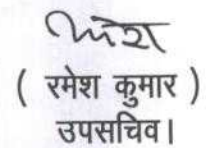 ( रमेश कुमार )
उपसचिव।